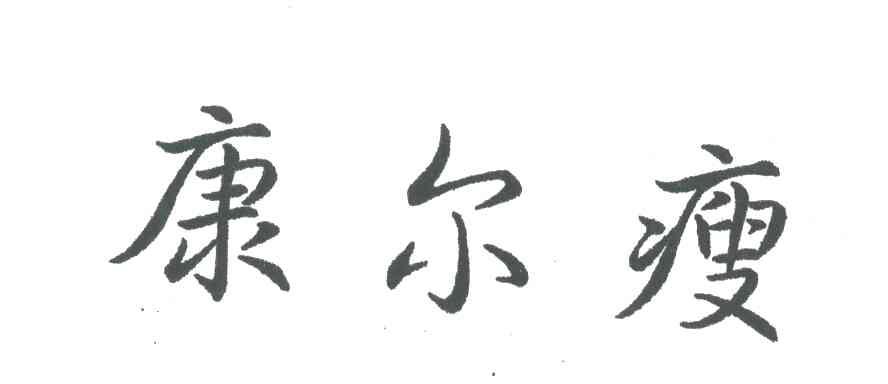 康尔瘦